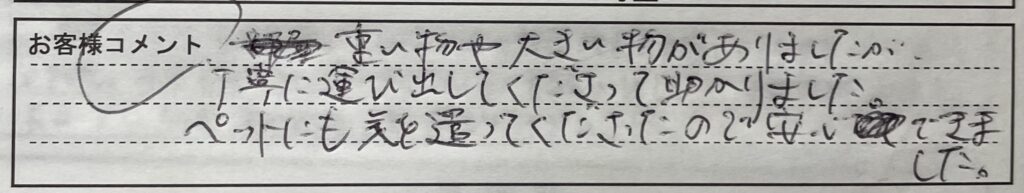 お客様コメント 重い物や大きい物がありましたが、
丁寧に運び出してくださって助かりました。
ペットにも気を遣ってくださったので安心できま
した。